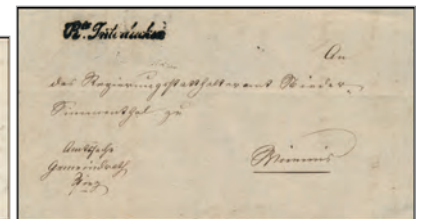 Rte. Interlacken
An
das Regierungsstatthalteramt Nieder-
Simmenthal zu
Amtssache
Gemeindrath
Spiez
Wimmis